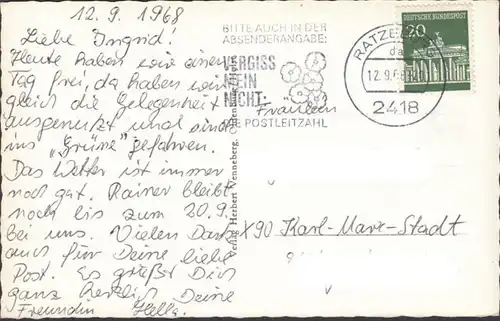 12.9.1968
Liebe Ingrid!
Heute haben wir einen
Tag frei, da haben wir
gleich die Gelegenheit
ausgenutzt und sind
ins „Grüne" gefahren.
Das Wetter ist immer
noch gut. Rainer bleibt
noch bis zum 20.9.
bei uns. Vielen Dank
auch für Deine liebe
Post. Es grüßt Dich
ganz herzlich Deine
Freundin Hella.
BITTE AUCH IN DER
ABSENDERANGABE:
VERGISS
MEIN
NICHT:
DIE POSTLEITZAHL
RATZE
12.9.68
2418
DEUTSCHE BUNDESPOST
20
Verlag Herbert Venneberg,
Fräulein
X90 Karl-Marx-Stadt